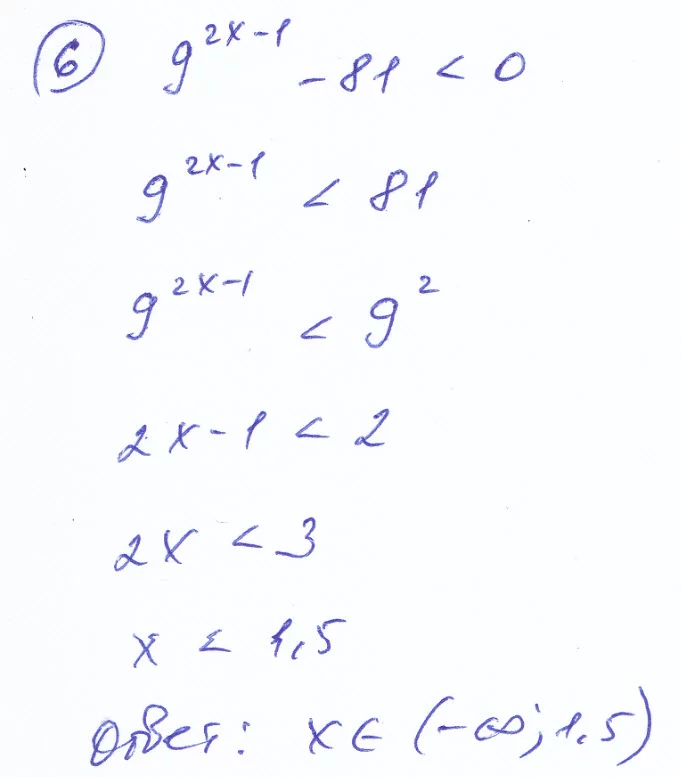 6 9^{2x-1} - 81 < 0
9^{2x-1} < 81
9^{2x-1} < 9^2
2x - 1 < 2
2x < 3
x < 1,5
Ответ: x ∈ (-∞; 1,5)